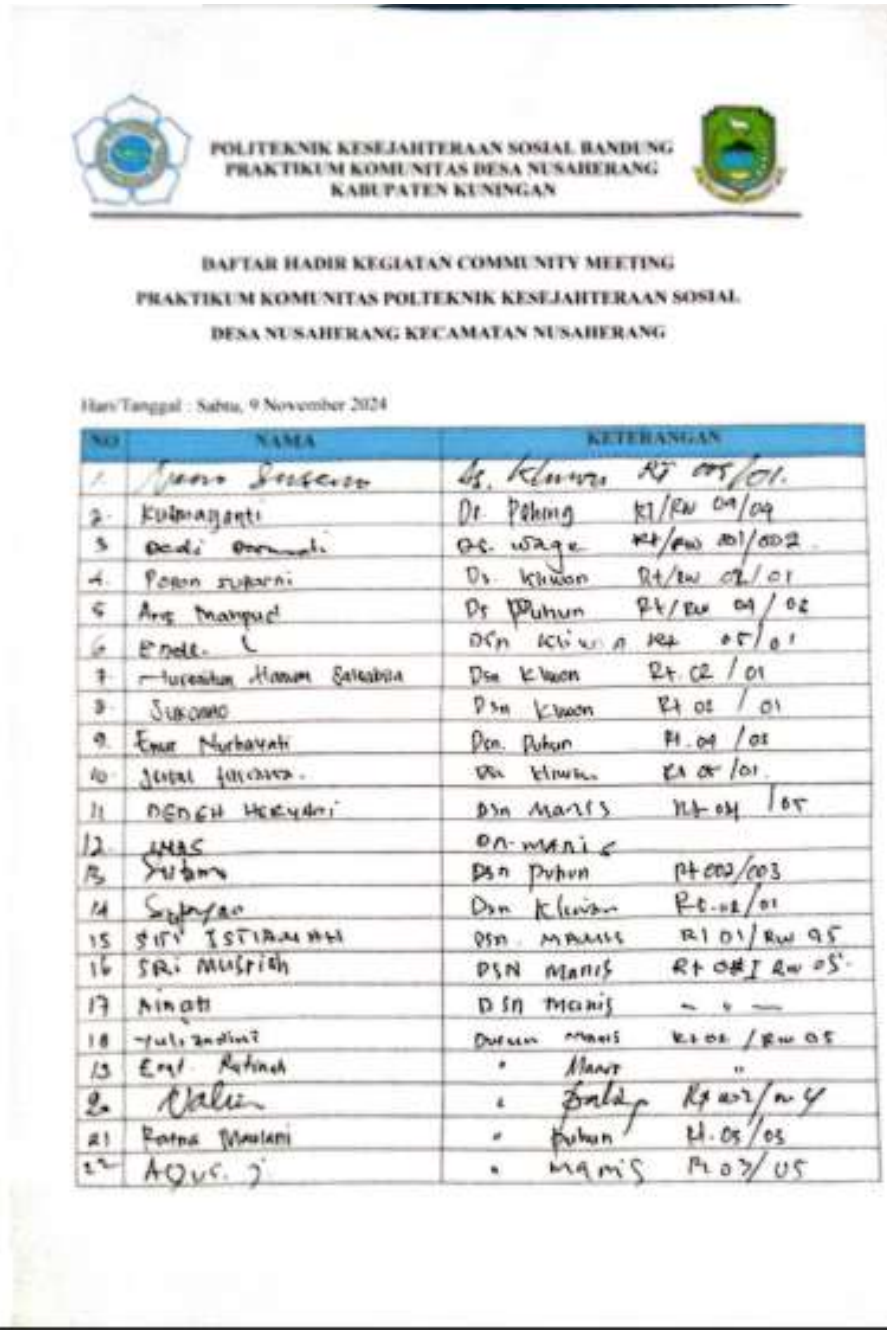 POLITEKNIK KESEJAHTERAAN SOSIAL BANDUNG
PRAKTIKUM KOMUNITAS DESA NUSAHERANG
KABUPATEN KUNINGAN
DAFTAR HADIR KEGIATAN COMMUNITY MEETING
PRAKTIKUM KOMUNITAS POLTEKNIK KESEJAHTERAAN SOSIAL
DESA NUSAHERANG KECAMATAN NUSAHERANG
Hari/Tanggal : Sabtu, 9 November 2024
NO NAMA KETERANGAN
1. Ds. Kliwon RT 005/01.
2. Kusmayanti Ds. Pahing RT/RW 04/04
3 Dedi Ds. Wage Rt/RW 001/002.
4. Ds. Kliwon Rt/RW 02/01
5 Aris Mahpud Ds Puhun Rt/RW 04/02
6 Ende. Dsn Kliwon Rt 05/01
7. Hanum Salsabila Dsn Kliwon Rt. 02/01
8. Sukanno Dsn Kliwon Rt 02/01
9. Enur Nurhayati Dsn. Puhun
10. Kliwon Rt 05/01.
11 DEDEH HERYANI Dsn Manis Rt 04/05
12. manis
13 Dsn Puhun Rt 002/003
14 Dsn Kliwon Rt. 02/01
15 SITI ISTIAMAH Dsn. MANIS Rt 01/RW 05
16 SRI DSN Manis RW 05.
17 Ainah DSN Manis - " -
18 Dusun Manis Rt 02/RW 05
19 Ratinah " Manis "
20 "
21 Ratna Maulani " Puhun Rt. 03/03
22 Agus. J " Manis Rt 03/05